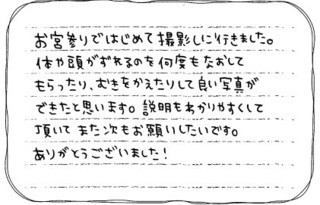 お宮参りではじめて撮影しに行きました。
体や頭がずれるのを何度もなおして
もらったり、むきをかえたりして良い写真が
できたと思います。説明もわかりやすくして
頂いて また次もお願いしたいです。
ありがとうございました!